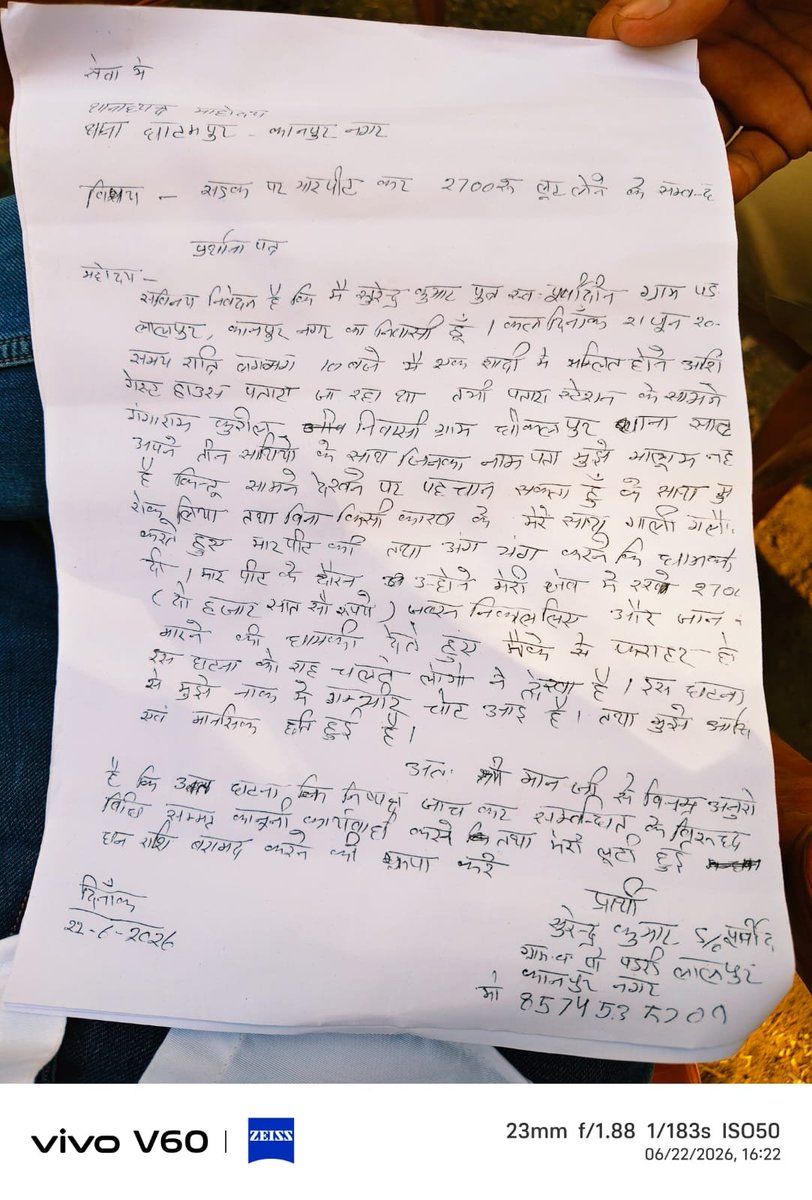 सेवा मे
थानाध्यक्ष महोदय
थाना घाटमपुर - कानपुर नगर
विषय - सडक पर मारपीट कर 2700रु लूट लेने के सम्बन्ध
प्रार्थना पत्र
महोदय -
सविनय निवेदन है कि मै सुरेन्द्र कुमार पुत्र स्व. ग्राम पड
लालपुर, कानपुर नगर का निवासी हूँ । कल दिनाँक 21 जून 20
समय रात्रि लगभग 10 बजे मै एक शादी मे होने
गेस्ट हाउस पतारा जा रहा था तभी पतारा स्टेशन के सामने
गंगाराम कुरील निवासी ग्राम थाना
अपने तीन साथियो के साथ जिनका नाम पता मुझे मालूम नह
है किन्तू सामने देखने पर पहचान सकता हूँ के साथ मु
रोक लिया तथा बिना किसी कारण के मेरे साथ गाली गलौ
करते हुए मारपीट की तथा अंग भंग करने कि धामकी
दी । मार पीट के दौरन उन्होने मेरी जेब मे रखे 270
(दो हजार सात सौ रूपये) जबरन निकाल लिए और जान
मारने की धामकी देते हुए मौके से फरार हो
इस घटना को राह चलते लोगो ने देखा है । इस घटना
से मुझे नाक मे गम्भीर चोट आई है । तथा मुझे
एवं मानसिक हुई है ।
अतः मान जी से विनम्र अनुरो
है कि उक्त घटना कि निष्पक्ष जाच कर सम्बन्धित के विरूद्ध
विधि सम्मत कानूनी कार्यवाही करने तथा मेरी लूटी हुई
धन राशि बरामद करने की कृपा करे
प्रार्थी
दिनाँक
सुरेन्द्र कुमार S/o
22-6-2026
ग्राम व पो पडरी लालपुर
कानपुर नगर
मो
vivo V60 | ZEISS
23mm f/1.88 1/183s ISO50
06/22/2026, 16:22